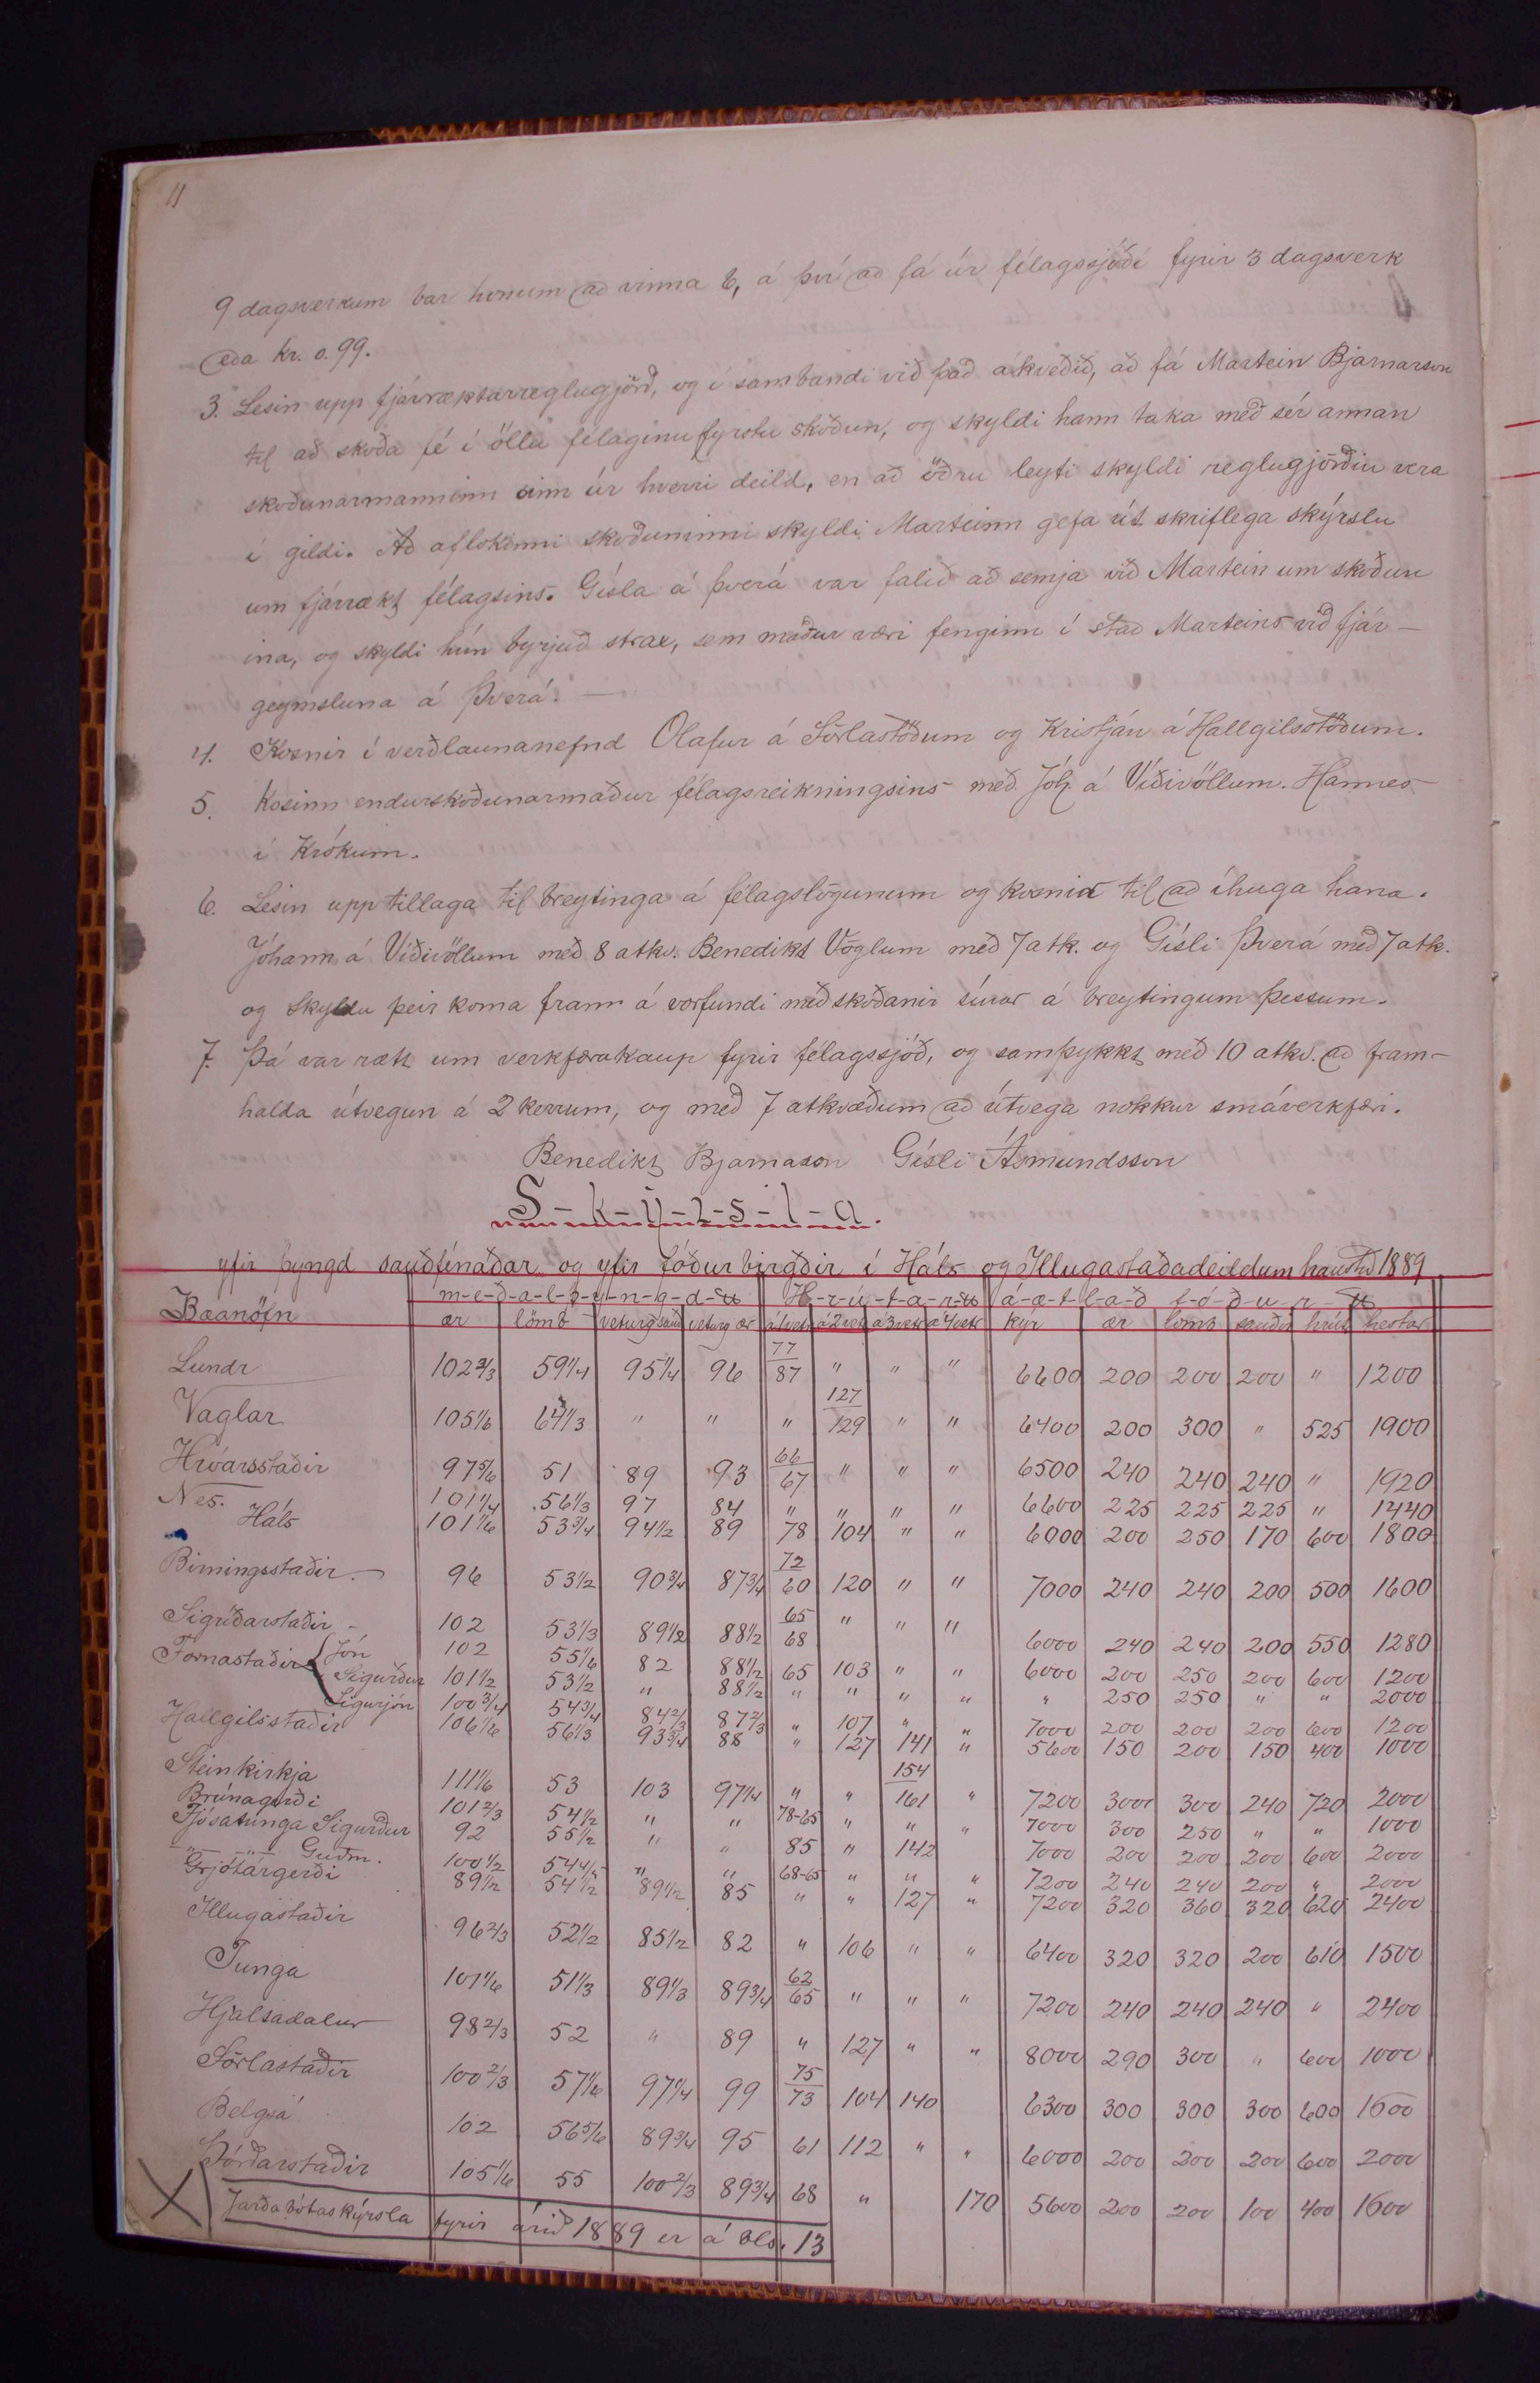 11
9 dagsverkum bar honum að vinna 6, á því að fá úr félagssjóði fyrir 3 dagsverk
eða kr. 0.99.
3. Lesin upp fjárræktarreglugjörð, og í sambandi við það ákveðið, að fá Martein Bjarnarson
til að skoða fé í öllu félaginu fyrstu skoðun, og skyldi hann taka með sér annan
skoðunarmanninn sinn úr hverri deild, en að öðru leyti skyldi reglugjörðin vera
í gildi. Að aflokinni skoðuninni skyldi Marteinn gefa út skriflega skýrslu
um fjárrækt félagsins. Gísla á Þverá var falið að semja við Martein um skoðun
ina, og skyldi hún byrjuð strax, sem maður væri fenginn í stað Marteins við fjár-
geymsluna á Þverá. —
4. Kosnir í verðlaunanefnd Olafur á Sörlastöðum og Kristján á Hallgilsstöðum.
5. Kosinn endurskoðunarmaður félagsreikningsins með Jóh. á Víðivöllum. Hannes
í Krókum.
6. Lesin upp tillaga til breytinga á félagslögunum og kosnir til að íhuga hana.
Jóhann á Víðivöllum með 8 atkv. Benedikt Vöglum með 7 atk. og Gísli Þverá með 7 atk.
og skyldu þeir koma fram á vorfundi með skoðanir sínar á breytingum þessum.
7. Þá var rætt um verkfærakaup fyrir félagssjóð, og samþykkt með 10 atkv. að fram-
halda útvegun á 2 kerrum, og með 7 atkvæðum að útvega nokkur smáverkfæri.
Benedikt Bjarnason Gísli Ásmundsson
S-k-ý-r-s-l-a.
yfir þyngd sauðfénaðar og yfir fóðurbirgðir í Háls og Illugastaðadeildum haustið 1889
Bæanöfn m-e-ð-a-l-þ-y-n-g-d-u H-r-ú-t-a-r-u á-æ-t-l-a-ð f-ó-ð-u-r
ær lömb veturg sauð veturg ær á 1 vetr á 2 vetr á 3 vetr á 4 vetr kýr ær lömb sauðir hrút hestar
Lundr 102 2/3 59 1/4 95 1/4 96 77/87 " " " 6600 200 200 200 " 1200
Vaglar 105 1/6 64 1/3 " " " 127/129 " " 6400 200 300 " 525 1900
Hróarsstaðir 97 5/6 51 89 93 66/67 " " " 6500 240 240 240 " 1920
Nes. 101 1/4 56 1/3 97 84 " " " " 6600 225 225 225 " 1440
Háls 101 1/6 53 3/4 94 1/2 89 78 104 " " 6000 200 250 170 600 1800
Birningsstaðir. 96 53 1/2 90 3/4 87 3/4 72/60 120 " " 7000 240 240 200 500 1600
Sigríðarstaðir 102 53 1/3 89 1/2 88 1/2 65/68 " " " 6000 240 240 200 550 1280
Fornastaðir Jón 102 55 1/6 82 88 1/2 65 103 " " 6000 200 250 200 600 1200
Sigurður 101 1/2 53 1/2 " 88 1/2 " " " " " 250 250 " " 2000
Sigurjón 100 3/4 54 3/4 84 2/3 87 2/3 " 107 " " 7000 200 200 200 600 1200
Hallgilsstaðir 106 1/6 56 1/3 93 3/4 88 " 127 141 " 5600 150 200 150 400 1000
Steinkirkja 111 1/6 53 103 97 1/4 " " 154/161 " 7200 300 300 240 720 2000
Brúnagerði 101 2/3 54 1/2 " " 78-65 " " " 7000 300 250 " " 1000
Fjósatunga Sigurður 92 55 1/2 " " 85 " 142 7000 200 200 200 600 2000
" " Guðm. 100 1/2 54 4/5 " " 68-65 " " " 7200 240 240 200 " 2000
Grjótárgerði 89 1/2 54 1/2 89 1/2 85 " " 127 " 7200 320 360 320 620 2400
Illugastaðir 96 2/3 52 1/2 85 1/2 82 " 106 " " 6400 320 320 200 610 1500
Tunga 101 1/6 51 1/3 89 1/3 89 3/4 62/65 " " " 7200 240 240 240 " 2400
Hjaltadalur 98 2/3 52 " 89 " 127 " " 8000 290 300 " 600 1000
Sörlastaðir 100 2/3 57 1/6 97 1/4 99 75/73 104 140 6300 300 300 300 600 1600
Belgsá 102 56 5/6 89 3/4 95 61 112 " " 6000 200 200 200 600 2000
Þórðarstaðir 105 1/6 55 100 2/3 89 3/4 68 " 170 5600 200 200 100 400 1600
Jarðabótaskýrsla fyrir árið 1889 er á bls. 13